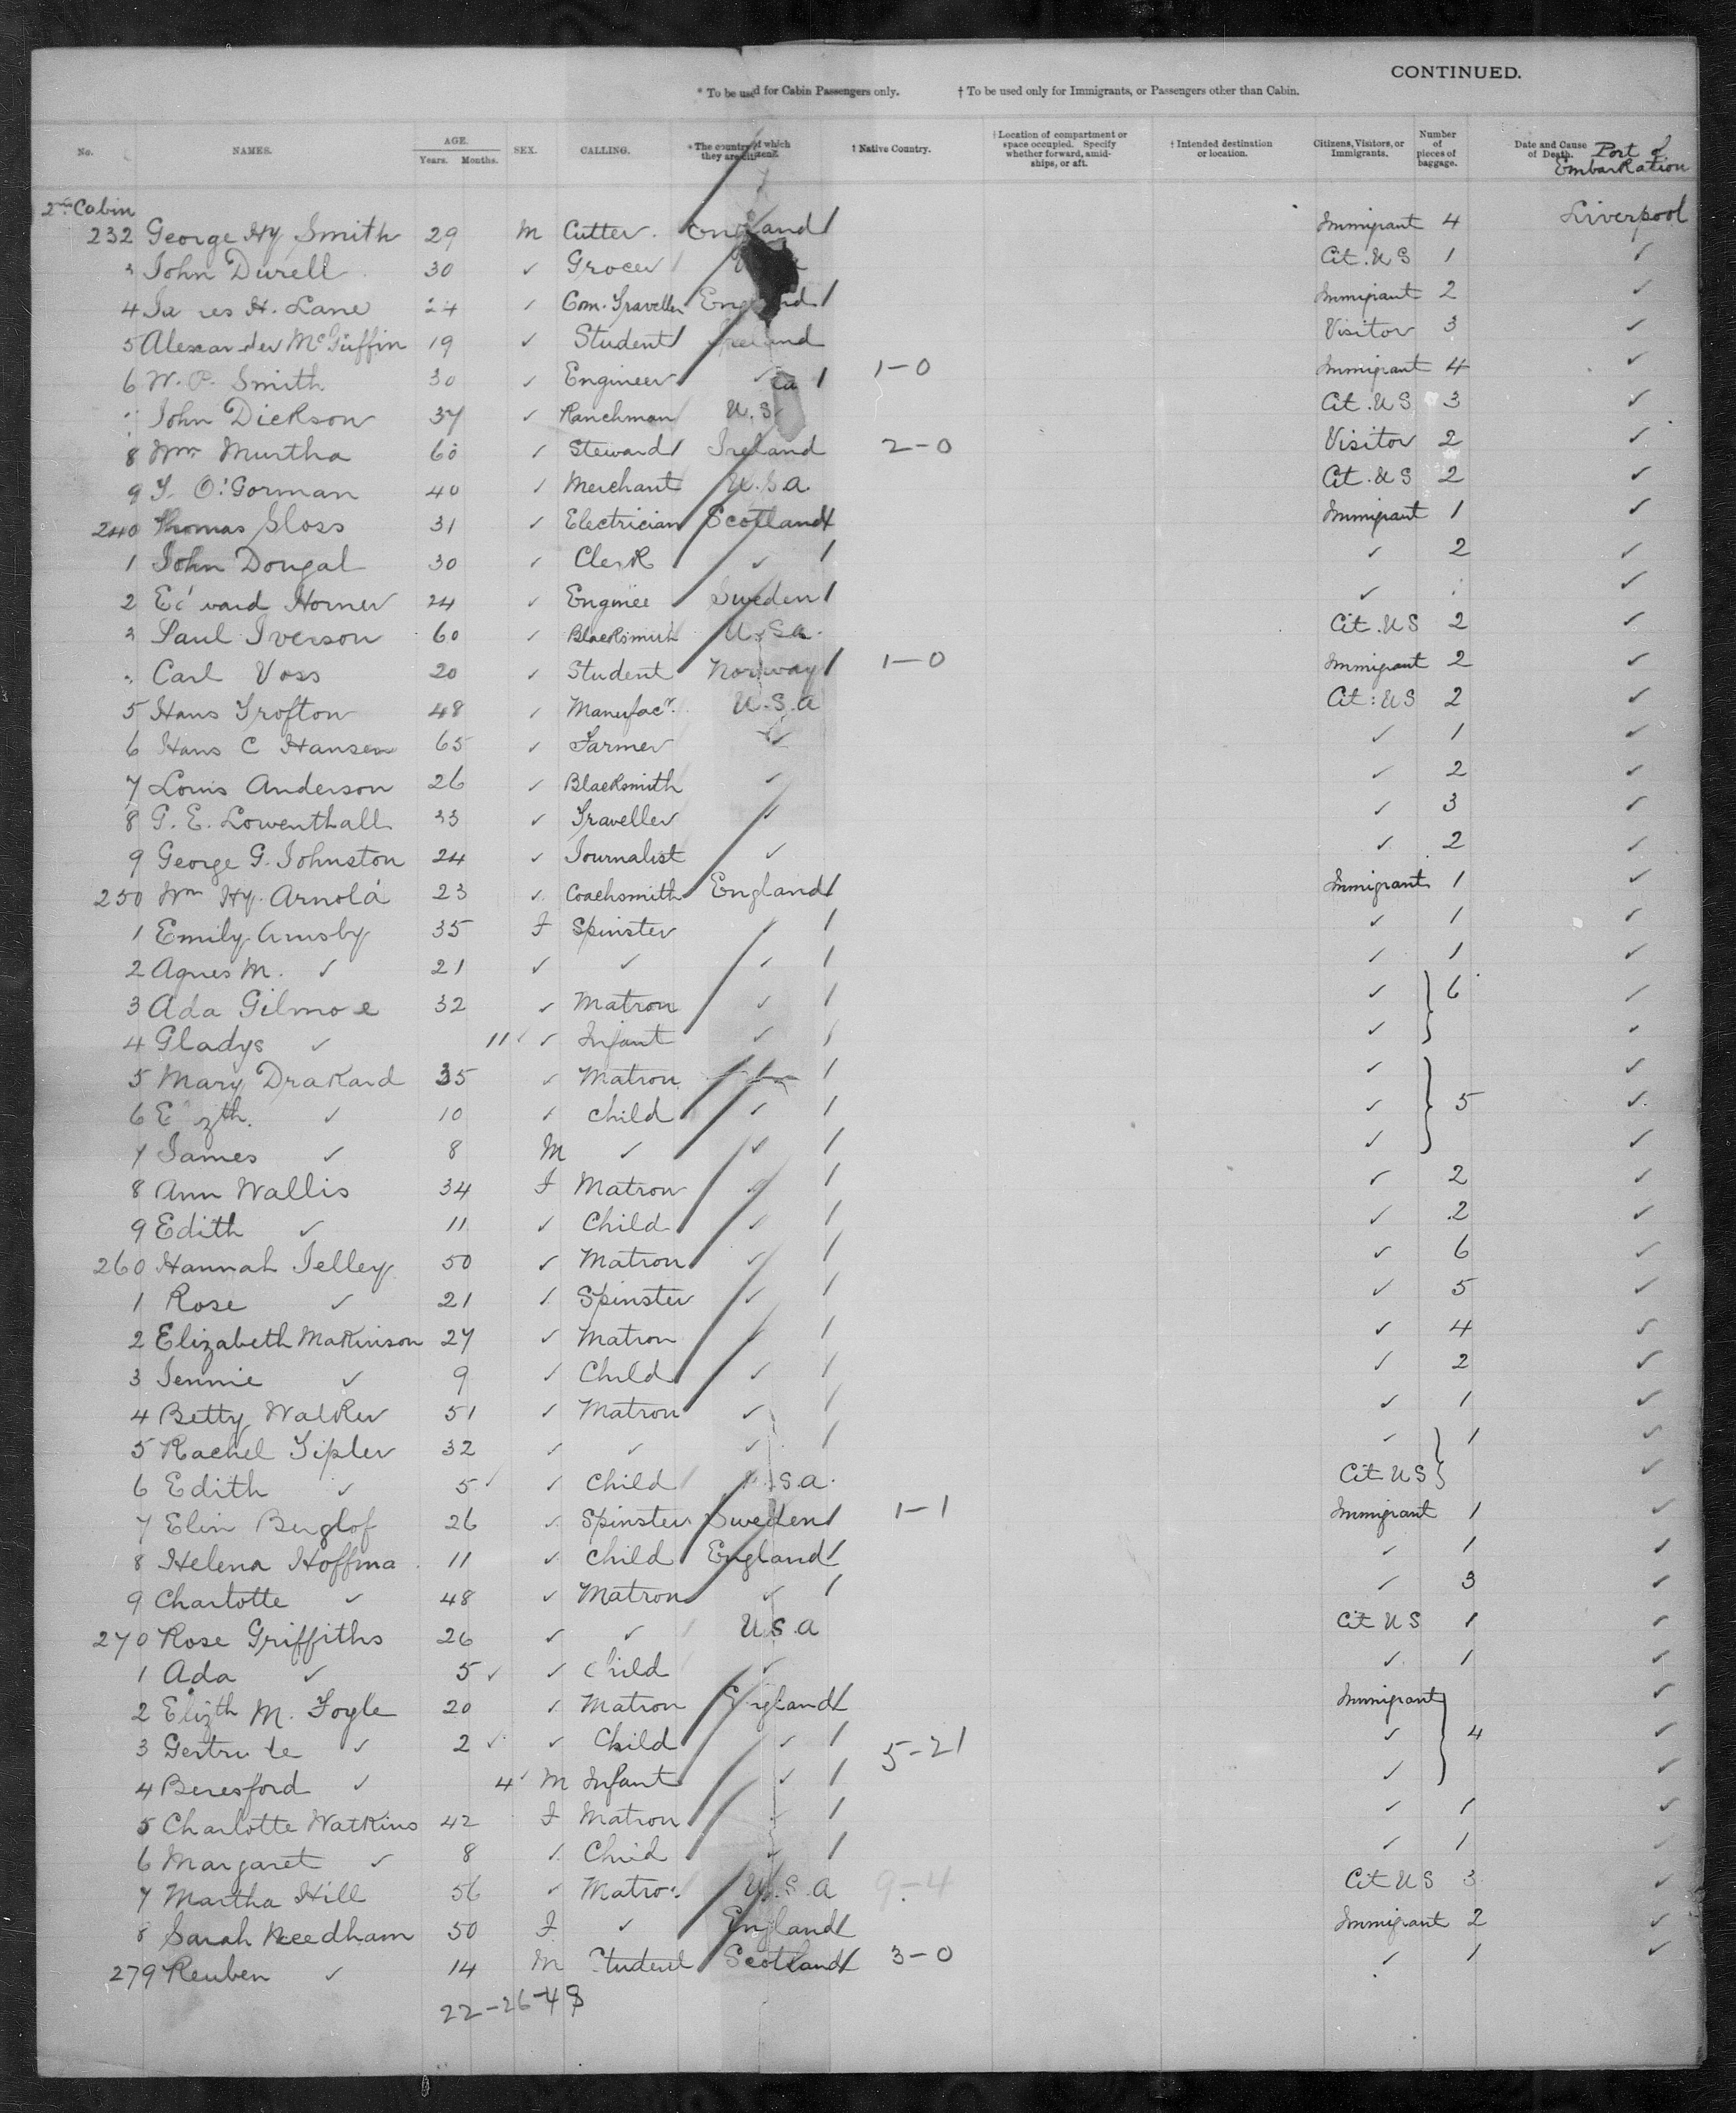 CONTINUED.
* To be used for Cabin Passengers only. † To be used only for Immigrants, or Passengers other than Cabin.
No. NAMES. AGE. Years. Months. SEX. CALLING. * The country of which they are citizens. † Native Country. † Location of compartment or space occupied. Specify whether forward, amidships, or aft. † Intended destination or location. Citizens, Visitors, or Immigrants. Number of pieces of baggage. Date and Cause of Death. Port of Embarkation
2nd Cabin
232 George Hy Smith 29 M Cutter. England / Immigrant 4 Liverpool
3 John Durell 30 ✓ Grocer Cit. US 1 ✓
4 Ja es H. Lane 24 ✓ Com. Traveller England / Immigrant 2 ✓
5 Alexander McGuffin 19 ✓ Student Ireland Visitor 3 ✓
6 W. P. Smith 30 ✓ Engineer ✓ / 1-0 Immigrant 4 ✓
John Dickson 37 ✓ Ranchman U.S a Cit. US 3 ✓
8 Wm Murtha 60 ✓ Steward Ireland 2-0 Visitor 2 ✓
9 T. O'Gorman 40 ✓ Merchant U.S.a Cit. US 2 ✓
240 Thomas Sloss 31 ✓ Electrician Scotland / Immigrant 1 ✓
1 John Dougal 30 ✓ Clerk ✓ / ✓ 2 ✓
2 Edward Horner 24 ✓ Enginee Sweden / ✓ ✓
3 Paul Iverson 60 ✓ Blacksmith U.S.a. Cit. US 2 ✓
Carl Voss 20 ✓ Student Norway / 1-0 Immigrant 2 ✓
5 Hans Grofton 48 ✓ Manufacr. U.S.a Cit: US 2 ✓
6 Hans C Hansen 65 ✓ Farmer ✓ ✓ 1 ✓
7 Louis Anderson 26 ✓ Blacksmith ✓ ✓ 2 ✓
8 G. E. Lowenthall 33 ✓ Traveller ✓ ✓ 3 ✓
9 George G. Johnston 24 ✓ Journalist ✓ ✓ 2 ✓
250 Wm Hy. Arnold 23 ✓ Coachsmith England / Immigrant 1 ✓
1 Emily Amsby 35 F Spinster ✓ / ✓ 1 ✓
2 Agnes M. ✓ 21 ✓ ✓ ✓ / ✓ 1 ✓
3 Ada Gilmo e 32 ✓ Matron ✓ / ✓ 6 ✓
4 Gladys ✓ 11 ✓ Infant ✓ / ✓ ✓
5 Mary Drakard 35 ✓ Matron ✓ / ✓ ✓
6 E zth. ✓ 10 ✓ Child ✓ / ✓ 5 ✓
7 James ✓ 8 M ✓ ✓ / ✓ ✓
8 Ann Wallis 34 F Matron ✓ / ✓ 2 ✓
9 Edith ✓ 11 ✓ Child ✓ / ✓ 2 ✓
260 Hannah Jelley 50 ✓ Matron ✓ / ✓ 6 ✓
1 Rose ✓ 21 ✓ Spinster ✓ / ✓ 5 ✓
2 Elizabeth Makinson 27 ✓ Matron ✓ / ✓ 4 ✓
3 Jennie ✓ 9 ✓ Child ✓ / ✓ 2 ✓
4 Betty Walker 51 ✓ Matron ✓ / ✓ 1 ✓
5 Rachel Tipler 32 ✓ ✓ ✓ / ✓ 1 ✓
6 Edith ✓ 5 ✓ ✓ Child .S.a. Cit US ✓
7 Elin Berglof 26 ✓ Spinster Sweden / 1-1 Immigrant 1 ✓
8 Helena Hoffma 11 ✓ Child England / ✓ 1 ✓
9 Charlotte ✓ 48 ✓ Matron ✓ / ✓ 3 ✓
270 Rose Griffiths 26 ✓ ✓ U.S.a Cit US 1 ✓
1 Ada ✓ 5 ✓ ✓ Child ✓ ✓ 1 ✓
2 Elizth M. Foyle 20 ✓ Matron England / Immigrant ✓
3 Gertru te ✓ 2 ✓ ✓ Child ✓ / 5-21 ✓ 4 ✓
4 Beresford ✓ 4 M Infant ✓ / ✓ ✓
5 Charlotte Watkins 42 F Matron ✓ / ✓ 1 ✓
6 Margaret ✓ 8 ✓ Child ✓ / ✓ 1 ✓
7 Martha Hill 56 ✓ Matron U.S.a 9-4 Cit US 3 ✓
8 Sarah Needham 50 F ✓ England / Immigrant 2 ✓
279 Reuben ✓ 14 M Student Scotland / 3-0 ✓ 1 ✓
22-26-48